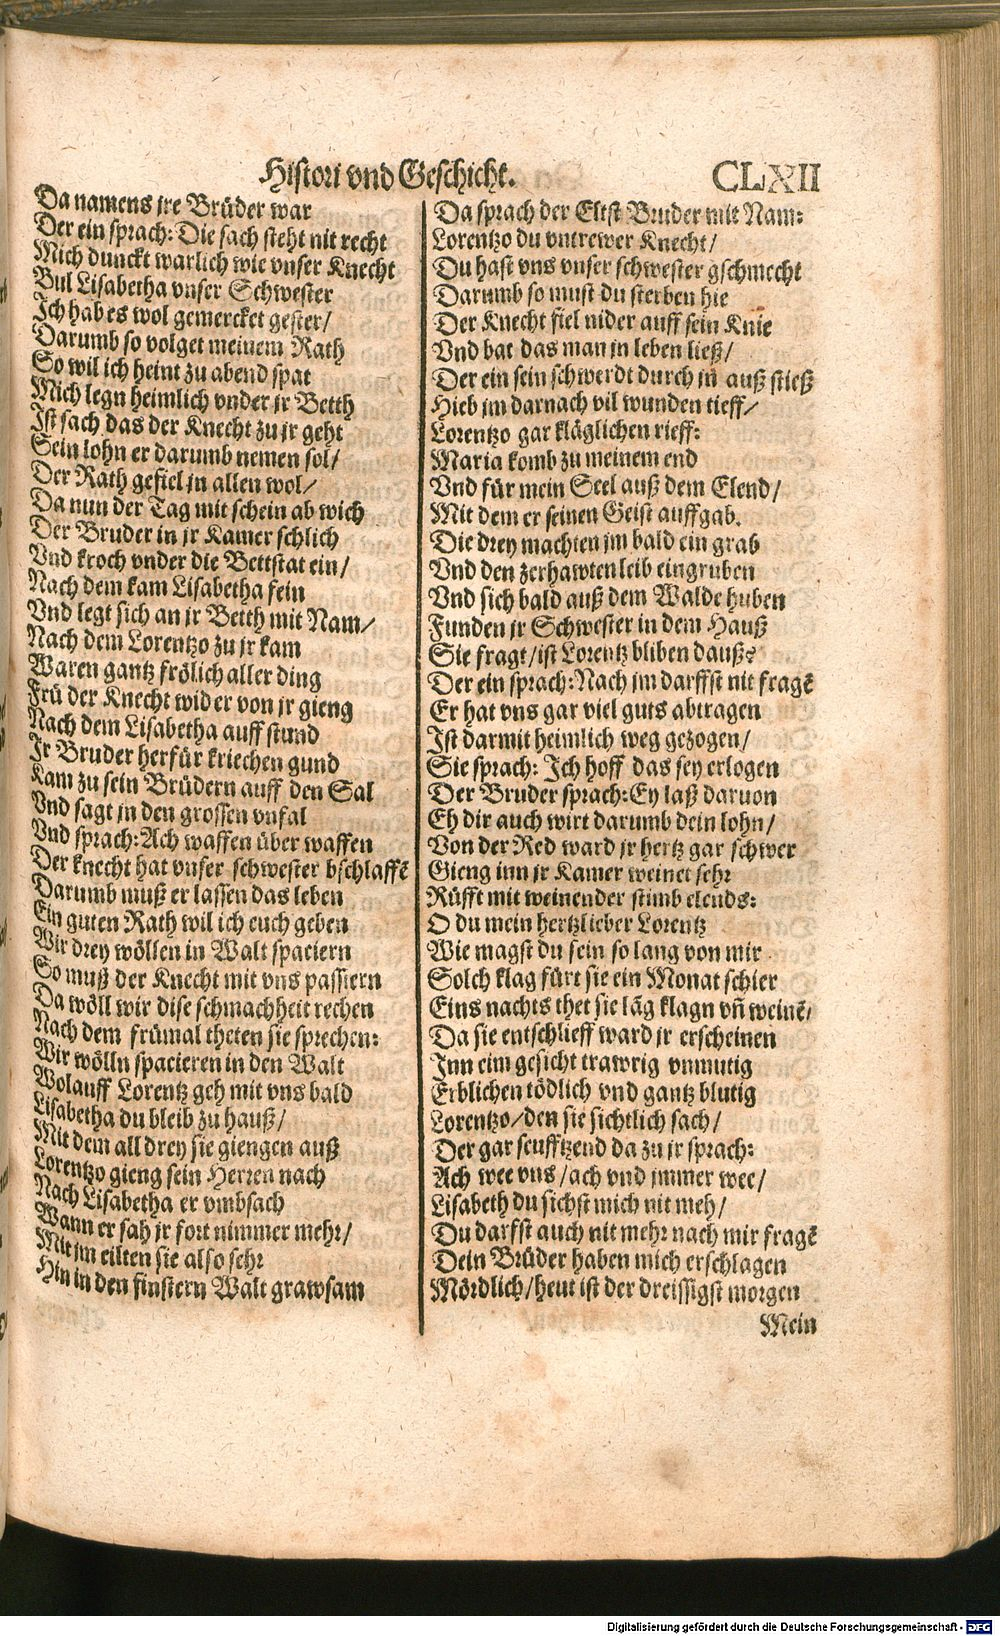 Histori vnd Geschicht. CLXII
Da namens jre Brüder war
Der ein sprach: Die sach steht nit recht
Mich dunckt warlich wie vnser Knecht
Bul Lisabetha vnser Schwester
Ich hab es wol gemercket gester/
Darumb so volget meinem Rath
So wil ich heint zu abend spat
Mich legn heimlich vnder jr Betth
Ist sach das der Knecht zu jr geht
Sein lohn er darumb nemen sol/
Der Rath gefiel jn allen wol/
Da nun der Tag mit schein ab wich
Der Bruder in jr Kamer schlich
Vnd kroch vnder die Bettstat ein/
Nach dem kam Lisabetha fein
Vnd legt sich an jr Betth mit Nam/
Nach dem Lorentzo zu jr kam
Waren gantz frölich aller ding
Frü der Knecht wider von jr gieng
Nach dem Lisabetha auff stund
Jr Bruder herfür kriechen gund
Kam zu sein Brüdern auff den Sal
Vnd sagt jn den grossen vnfal
Vnd sprach: Ach waffen über waffen
Der knecht hat vnser schwester bschlaffē
Darumb muß er lassen das leben
Ein guten Rath wil ich euch geben
Wir drey wöllen in Walt spaciern
So muß der Knecht mit vns passiern
Da wöll wir dise schmachheit rechen
Nach dem frümal theten sie sprechen:
Wir wölln spacieren in den Walt
Wolauff Lorentz geh mit vns bald
Lisabetha du bleib zu hauß/
Mit dem all drey sie giengen auß
Lorentzo gieng sein Herren nach
Nach Lisabetha er vmbsach
Wann er sah jr fort nimmer mehr/
Mit jm eilten sie also sehr
Hin in den finstern Walt grawsam
Da sprach der Eltst Bruder mit Nam:
Lorentzo du vntrewer Knecht/
Du hast vns vnser schwester gschmecht
Darumb so must du sterben hie
Der Knecht fiel nider auff sein Knie
Vnd bat das man jn leben ließ/
Der ein sein schwerdt durch jn auß stieß
Hieb jm darnach vil wunden tieff/
Lorentzo gar kläglichen rieff:
Maria komb zu meinem end
Vnd für mein Seel auß dem Elend/
Mit dem er seinen Geist auffgab.
Die drey machten jm bald ein grab
Vnd den zerhawten leib eingruben
Vnd sich bald auß dem Walde huben
Funden jr Schwester in dem Hauß
Sie fragt/ist Lorentz bliben dauß?
Der ein sprach: Nach jm darffst nit fragē
Er hat vns gar viel guts abtragen
Ist darmit heimlich weg gezogen/
Sie sprach: Ich hoff das sey erlogen
Der Bruder sprach: Ey laß daruon
Eh dir auch wirt darumb dein lohn/
Von der Red ward jr hertz gar schwer
Gieng inn jr Kamer weinet sehr
Rüfft mit weinender stimb elends:
O du mein hertzlieber Lorentz
Wie magst du sein so lang von mir
Solch klag fürt sie ein Monat schier
Eins nachts thet sie lāg klagn vñ weinē/
Da sie entschlieff ward jr erscheinen
Inn eim gesicht trawrig vnmutig
Erblichen tödlich vnd gantz blutig
Lorentzo/den sie sichtlich sach/
Der gar seufftzend da zu jr sprach:
Ach wee vns/ach vnd jmmer wee/
Lisabeth du sichst mich nit meh/
Du darffst auch nit mehr nach mir fragē
Dein Brüder haben mich erschlagen
Mördlich/heut ist der dreissigst morgen
Mein
Digitalisierung gefördert durch die Deutsche Forschungsgemeinschaft - DFG